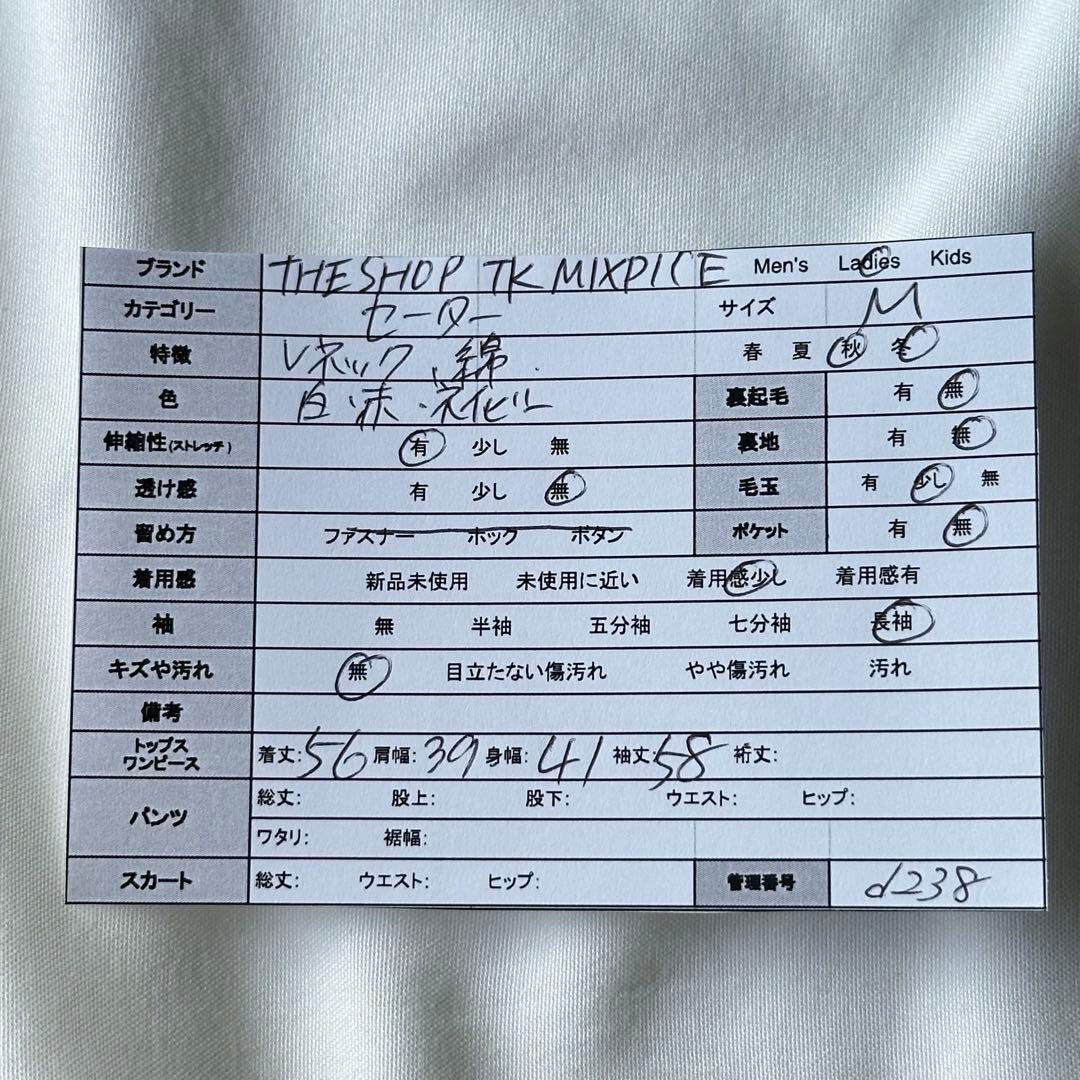 ブランド THE SHOP TK MIXPICE Men's Ladies Kids
カテゴリー セーター サイズ M
特徴 Vネック、綿. 春 夏 秋 冬
色 白・赤・ネイビー 裏起毛 有 無
伸縮性(ストレッチ) 有 少し 無 裏地 有 無
透け感 有 少し 無 毛玉 有 少し 無
留め方 ファスナー ホック ボタン ポケット 有 無
着用感 新品未使用 未使用に近い 着用感少し 着用感有
袖 無 半袖 五分袖 七分袖 長袖
キズや汚れ 無 目立たない傷汚れ やや傷汚れ 汚れ
備考
トップス ワンピース 着丈:56 肩幅:39 身幅:41 袖丈:58 裄丈:
パンツ 総丈: 股上: 股下: ウエスト: ヒップ:
ワタリ: 裾幅:
スカート 総丈: ウエスト: ヒップ: 管理番号 d238